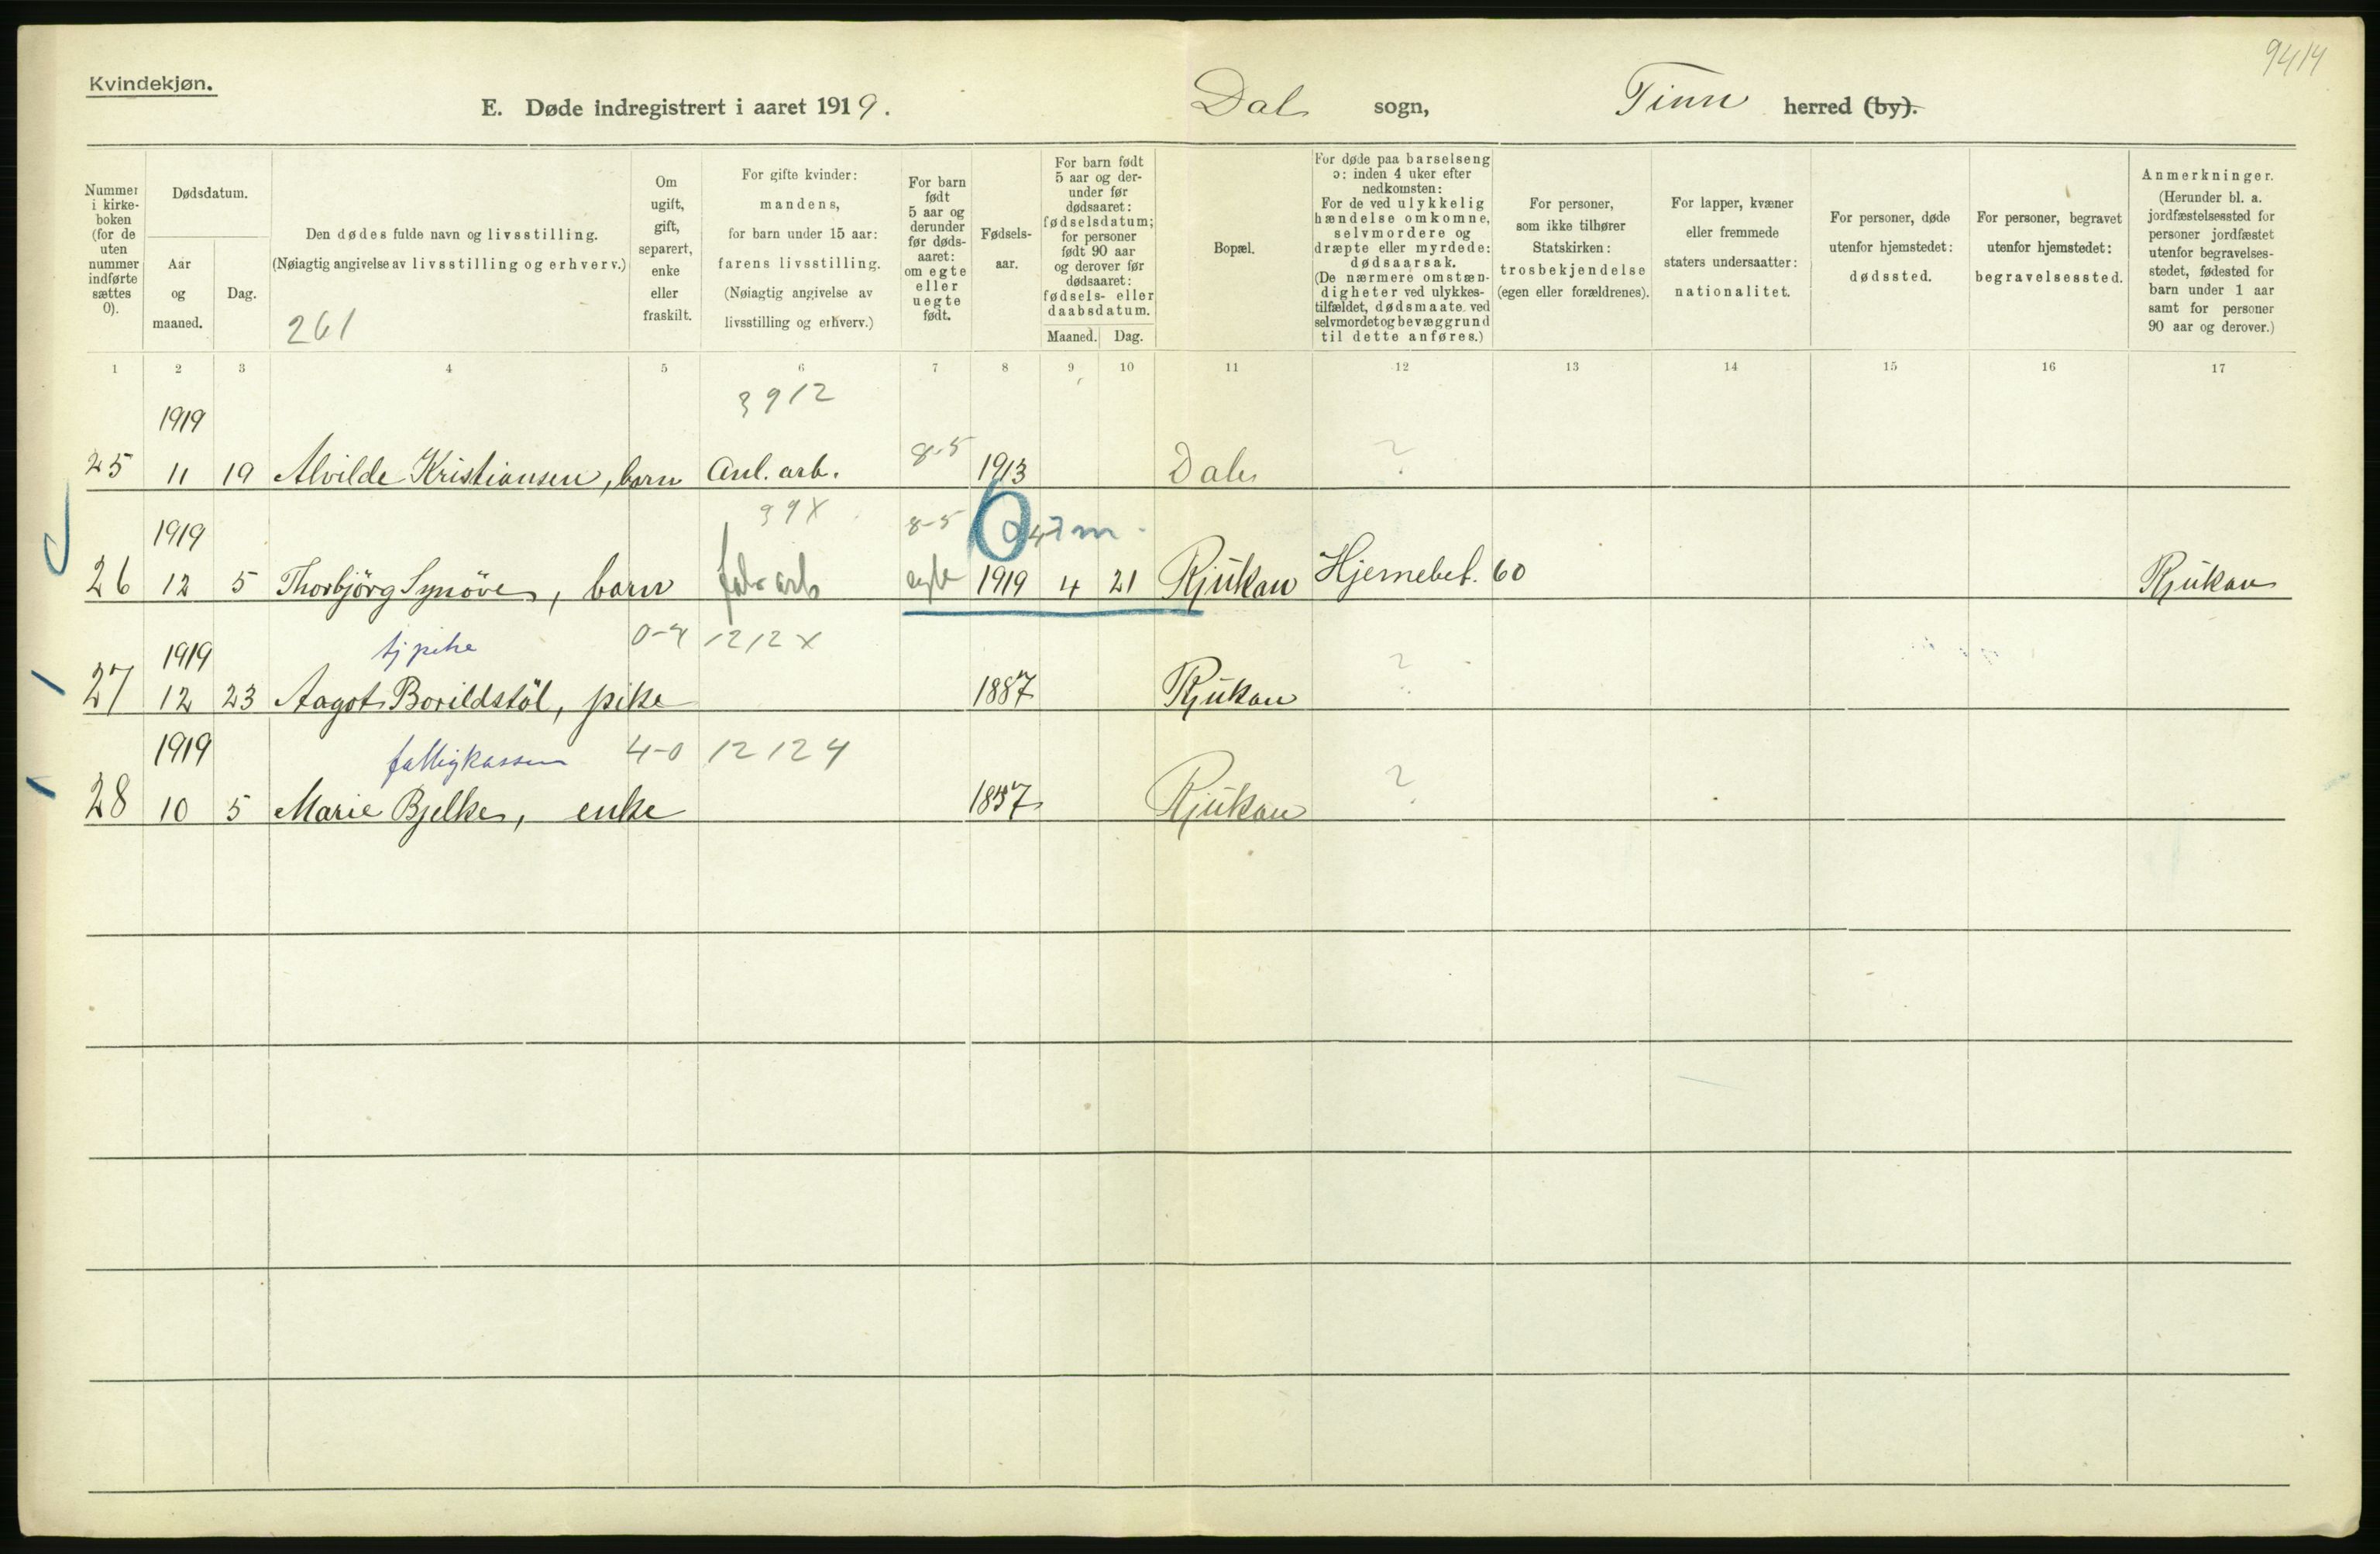 9414
Kvindekjøn.
E. Døde indregistrert i aaret 1919. Dal sogn, Tinn herred (by).
Nummer i kirkeboken (for de uten nummer indførte sættes 0).
Dødsdatum.
Aar og maaned.
Dag.
Den dødes fulde navn og livsstilling.
(Nøiagtig angivelse av livsstilling og erhverv.)
261
Om ugift, gift, separert, enke eller fraskilt.
For gifte kvinder:
mandens,
for barn under 15 aar:
farens livsstilling.
(Nøiagtig angivelse av
livsstilling og erhverv.)
For barn født 5 aar og derunder før dødsaaret: om egte eller uegte født.
Fødselsaar.
For barn født 5 aar og derunder før dødsaaret: fødselsdatum; for personer født 90 aar og derover før dødsaaret: fødsels- eller daabsdatum.
Maaned. Dag.
Bopæl.
For døde paa barselseng
ɔ: inden 4 uker efter
nedkomsten:
For de ved ulykkelig
hændelse omkomne,
selvmordere og
dræpte eller myrdede:
dødsaarsak.
(De nærmere omstæn-
digheter ved ulykkes-
tilfældet, dødsmaate ved
selvmordet og bevæggrund
til dette anføres.)
For personer,
som ikke tilhører
Statskirken:
trosbekjendelse
(egen eller forældrenes).
For lapper, kvæner
eller fremmede
staters undersaatter:
nationalitet.
For personer, døde
utenfor hjemstedet:
dødssted.
For personer, begravet
utenfor hjemstedet:
begravelsessted.
Anmerkninger.
(Herunder bl. a.
jordfæstelsessted for
personer jordfæstet
utenfor begravelses-
stedet, fødested for
barn under 1 aar
samt for personer
90 aar og derover.)
1 2 3 4 5 6 7 8 9 10 11 12 13 14 15 16 17
3912
1919
8-5
25 11 19 Alvilde Kristiansen, barn Anl. arb. 1913 Dale ?
39X
1919 8-5 7 m
26 12 5 Thorbjörg Synöve, barn fabr arb egte 1919 4 21 Rjukan Hjernebet. 60 Rjukan
1919 tj pike 0-4 1212X
27 12 23 Aagot Borildstöl, pike 1887 Rjukan ?
1919 fattigkassen 4-0 12124
28 10 5 Marie Bjelke, enke 1857 Rjukan ?